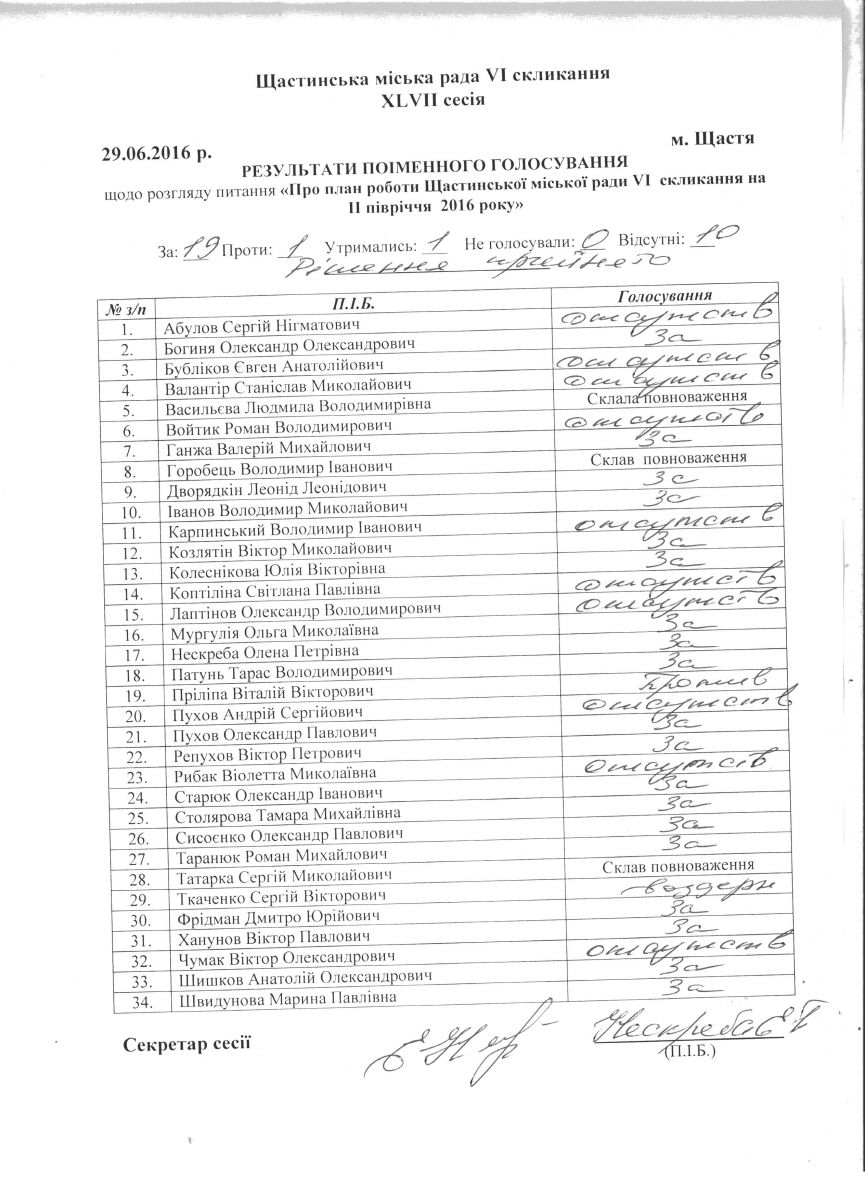 Щастинська міська рада VI скликання
XLVII сесія
29.06.2016 р. м. Щастя
РЕЗУЛЬТАТИ ПОІМЕННОГО ГОЛОСУВАННЯ
щодо розгляду питання «Про план роботи Щастинської міської ради VI скликання на
II півріччя 2016 року»
За: 19 Проти: 1 Утримались: 1 Не голосували: 0 Відсутні: 10
Рішення прийнято
№ з/п П.І.Б. Голосування
1. Абулов Сергій Нігматович отсутств
2. Богиня Олександр Олександрович За
3. Бубліков Євген Анатолійович отсутств
4. Валантір Станіслав Миколайович отсутств
5. Васильєва Людмила Володимирівна Склала повноваження
6. Войтик Роман Володимирович отсутств
7. Ганжа Валерій Михайлович За
8. Горобець Володимир Іванович Склав повноваження
9. Дворядкін Леонід Леонідович За
10. Іванов Володимир Миколайович За
11. Карпинський Володимир Іванович отсутств
12. Козлятін Віктор Миколайович За
13. Колеснікова Юлія Вікторівна За
14. Коптіліна Світлана Павлівна отсутств
15. Лаптінов Олександр Володимирович отсутств
16. Мургулія Ольга Миколаївна За
17. Нескреба Олена Петрівна За
18. Патунь Тарас Володимирович За
19. Пріліпа Віталій Вікторович Против
20. Пухов Андрій Сергійович отсутств
21. Пухов Олександр Павлович За
22. Репухов Віктор Петрович За
23. Рибак Віолетта Миколаївна отсутств
24. Старюк Олександр Іванович За
25. Столярова Тамара Михайлівна За
26. Сисоєнко Олександр Павлович За
27. Таранюк Роман Михайлович За
28. Татарка Сергій Миколайович Склав повноваження
29. Ткаченко Сергій Вікторович воздерж
30. Фрідман Дмитро Юрійович За
31. Ханунов Віктор Павлович За
32. Чумак Віктор Олександрович отсутств
33. Шишков Анатолій Олександрович За
34. Швидунова Марина Павлівна За
Секретар сесії Нескреба Е П
(П.І.Б.)